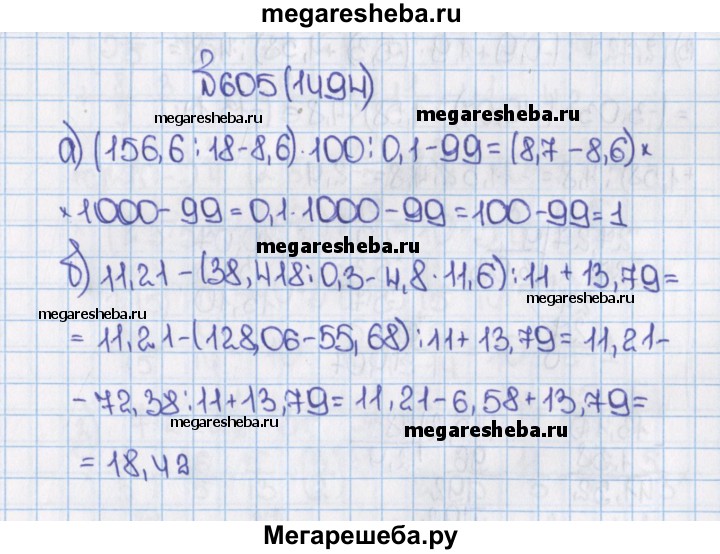 megaresheba.ru
№605(1494)
megaresheba.ru
megaresheba.ru
а) (156,6:18-8,6)·100:0,1-99=(8,7-8,6)×
×1000-99=0,1·1000-99=100-99=1
megaresheba.ru
б) 11,21-(38,418:0,3-4,8·11,6):11+13,79=
megaresheba.ru
megaresheba.ru
=11,21-(128,06-55,68):11+13,79=11,21-
-72,38:11+13,79=11,21-6,58+13,79=
megaresheba.ru
megaresheba.ru
=18,42
Мегарешеба.ру